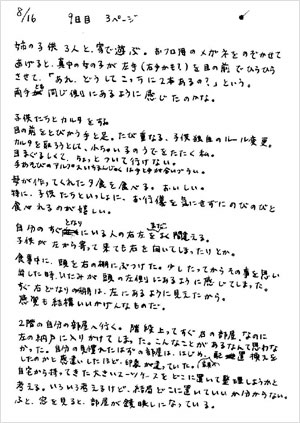 8/16 9日目 3ページ
姉の子供3人と、家で遊ぶ。おフロ用のメガネをのぞかせて
あげると、真中の女の子が左手(右手かも?)を目の前でひらひら
させて、「あれ、どうしてこっちに2本あるの?」という。
両手とも同じ側にあるように感じたのかな。
子供たちとカルタをする
目の前をとびかう手と足。たび重なる、子供独自のルール変更。
カルタを取ろうとして、いろいろなうでをたたく私。
目まぐるしくて、ちょっとついて行けない。
母が作ってくれた夕食を食べる。おいしい。
特に、子供たちといっしょに、お行儀を気にせずにのびのびと
食べれるのが嬉しい。
自分のすぐとなりにいる人の右左をまだ間違える。
子供が左から寄って来ても右を向いてしまったりとか。
食事中に、頭を右の棚にぶつけた。少したってからその事を思い
出した時、いたみが頭の左側にあるように感じてしまった。
すぐ右どなりの棚は、左にあるように見えたから。
感覚も結構いいかげんなものだ。
2階の自分の部屋へ行く。階段上ってすぐ右の部屋、なのに
左の納戸に入りかけてしまった。こんなことがあるなんて思わな
かった。自分の見慣れたはずの部屋は、はじめ、配置換えを
したのかと思いましたほど、印象が違っていた。
自宅から持ってきた大きいスーツケースをどこに置いて整理しようかと
考える。いろいろ考えるけど、結局どこに置いていいか分からない。
ふと、窓を見ると、部屋が鏡映しになっている。